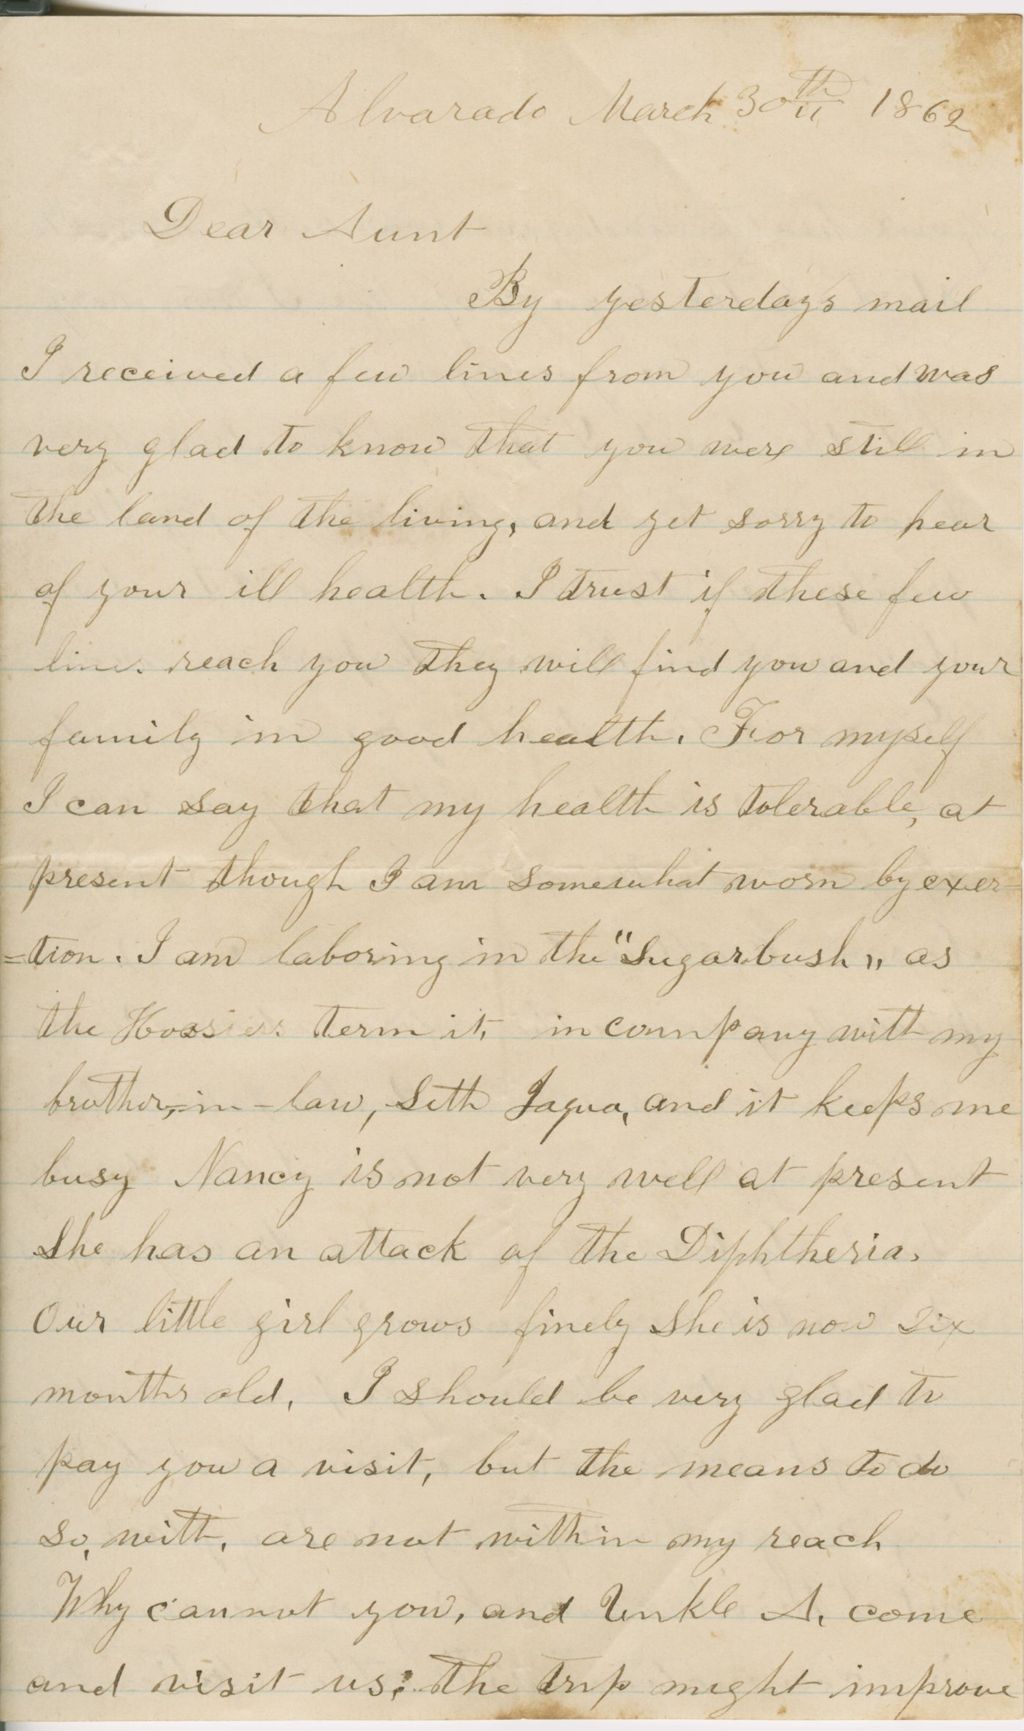 Alvarado March 30th 1862
Dear Aunt
By yesterdays mail
I received a few lines from you and was
very glad to know that you were still in
the land of the living, and yet sorry to hear
of your ill health. I trust if these few
lines reach you they will find you and your
family in good health. For myself
I can say that my health is tolerable, at
present though I am somewhat worn by exer-
=tion. I am laboring in the "Sugarbush" as
the Hoosiers term it, in counpany with my
brother,-in-law, Seth Jaqua, and it keeps me
busy Nancy is not very well at present
She has an attack of the Diphtheria.
Our little girl grows finely She is now Six
months old. I should be very glad to
pay you a visit, but the means to do
so, with, are not within my reach
Why cannot you, and Unkle A, come
and visit us; the trip might improve